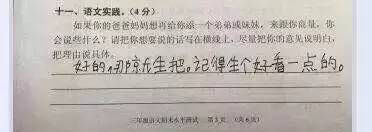 十一、语文实践。(4分)
如果你的爸爸妈妈想再给你添一个弟弟或妹妹，来跟你商量，你
会说些什么？请把你想要说的话写在横线上，尽量把你的意见说明白，
把理由说具体。
好的,你尽生把。记得生个好看一点的。
三年级语文期末水平测试 第5页 (共6页)